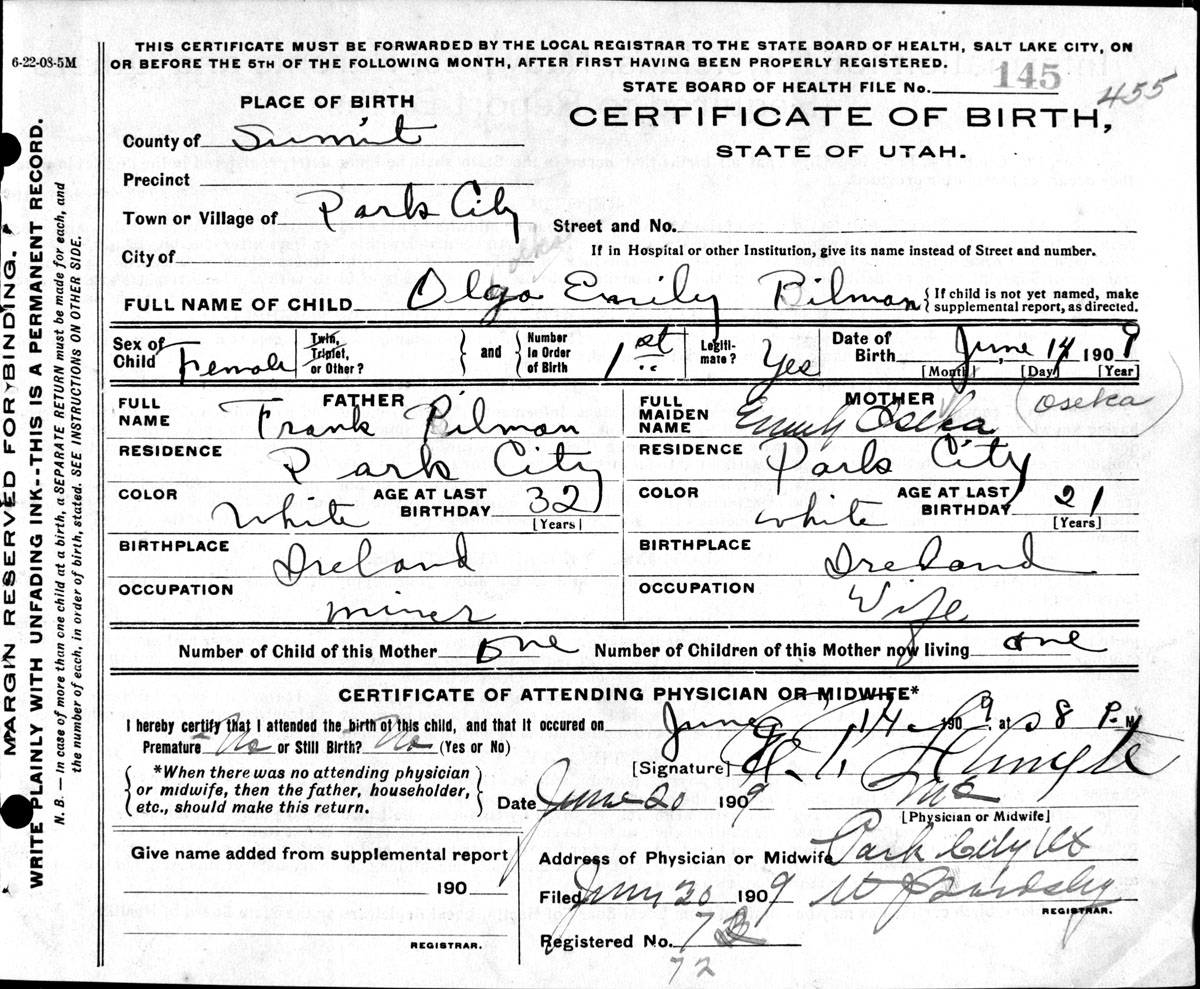 6-22-08-5M
THIS CERTIFICATE MUST BE FORWARDED BY THE LOCAL REGISTRAR TO THE STATE BOARD OF HEALTH, SALT LAKE CITY, ON
OR BEFORE THE 5TH OF THE FOLLOWING MONTH, AFTER FIRST HAVING BEEN PROPERLY REGISTERED.
STATE BOARD OF HEALTH FILE No. 145
455
PLACE OF BIRTH
CERTIFICATE OF BIRTH,
STATE OF UTAH.
County of Summit
Precinct
Town or Village of Park City
Street and No.
City of
If in Hospital or other Institution, give its name instead of Street and number.
FULL NAME OF CHILD Olga Emily Bilman
{ If child is not yet named, make
supplemental report, as directed.
Sex of Child Female
Twin, Triplet, or Other? } and { Number in Order of Birth 1st
Legiti-mate? Yes
Date of Birth June 14 1909
[Month] [Day] [Year]
FATHER
FULL NAME Frank Bilman
RESIDENCE Park City
COLOR White
AGE AT LAST BIRTHDAY 32
[Years]
BIRTHPLACE Ireland
OCCUPATION miner
MOTHER
(Oseka)
FULL MAIDEN NAME Emily Oseka
RESIDENCE Park City
COLOR White
AGE AT LAST BIRTHDAY 21
[Years]
BIRTHPLACE Ireland
OCCUPATION Wife
Number of Child of this Mother One Number of Children of this Mother now living one
CERTIFICATE OF ATTENDING PHYSICIAN OR MIDWIFE*
I hereby certify that I attended the birth of this child, and that it occured on June 14 1909, at 8 P. M
Premature No or Still Birth? No (Yes or No)
{ *When there was no attending physician
or midwife, then the father, householder,
etc., should make this return. }
[Signature]
[Physician or Midwife]
Date June 20 1909
Give name added from supplemental report
190
REGISTRAR.
Address of Physician or Midwife Park City Ut
Filed June 30 1909
REGISTRAR.
Registered No. 7
72
MARGIN RESERVED FOR BINDING.
WRITE PLAINLY WITH UNFADING INK--THIS IS A PERMANENT RECORD.
N. B. — In case of more than one child at a birth, a SEPARATE RETURN must be made for each, and
the number of each, in order of birth, stated. SEE INSTRUCTIONS ON OTHER SIDE.